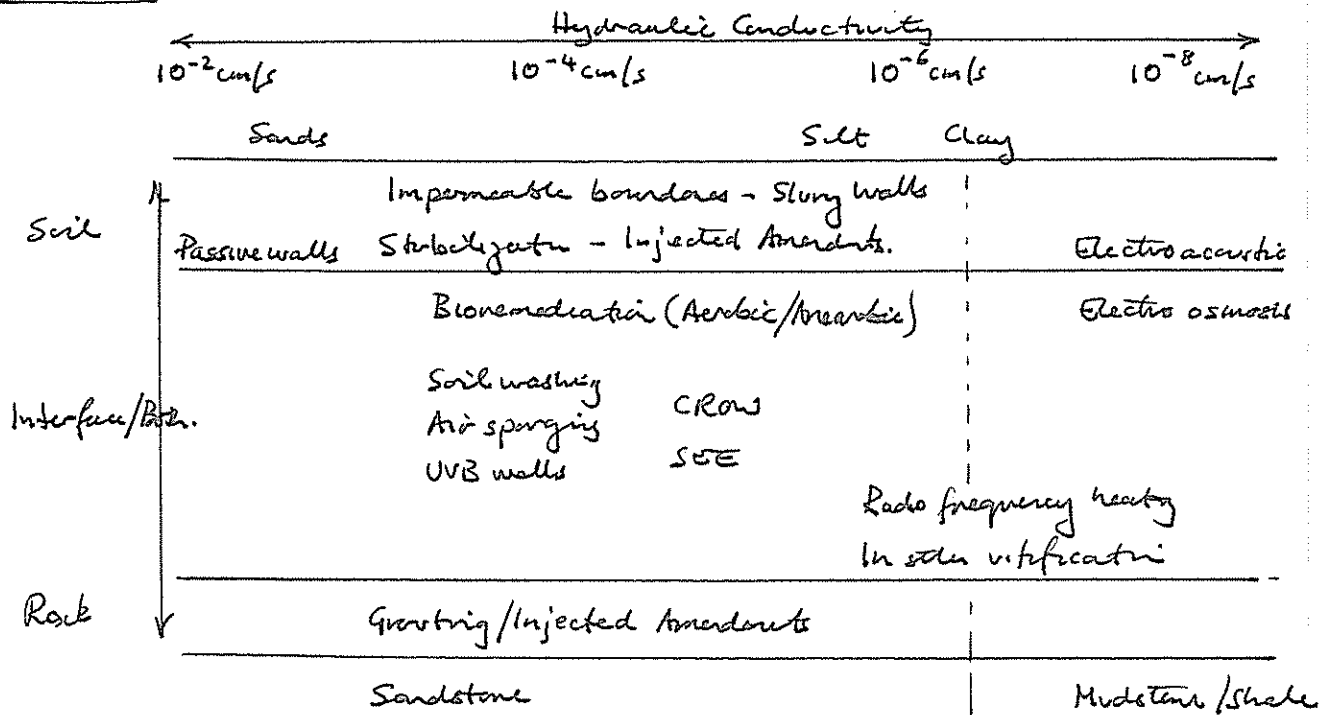 Hydraulic Conductivity
10⁻² cm/s 10⁻⁴ cm/s 10⁻⁶ cm/s 10⁻⁸ cm/s
Sands Silt Clay
Impermeable boundaries - Slurry Walls
Soil
Passive walls Stabilization - Injected Amendments. Electroacoustic
Bioremediation (Aerobic/Anaerobic) Electro osmosis
Soil washing
CROW
Interface/Both.
Air sparging
SEE
UVB wells
Radio frequency heating
In situ vitrification
Rock Grouting/Injected Amendments
Sandstone Mudstone/Shale